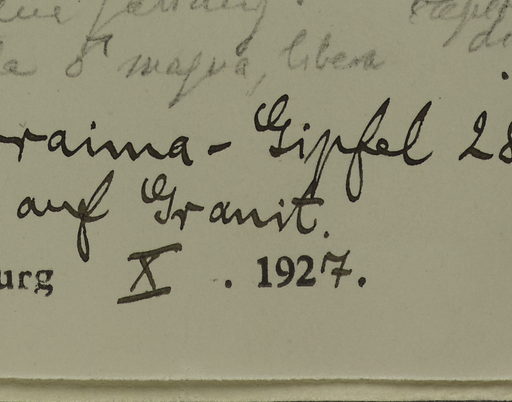 magna, libera
raima - Gipfel 28
auf Granit.
urg X . 1927.